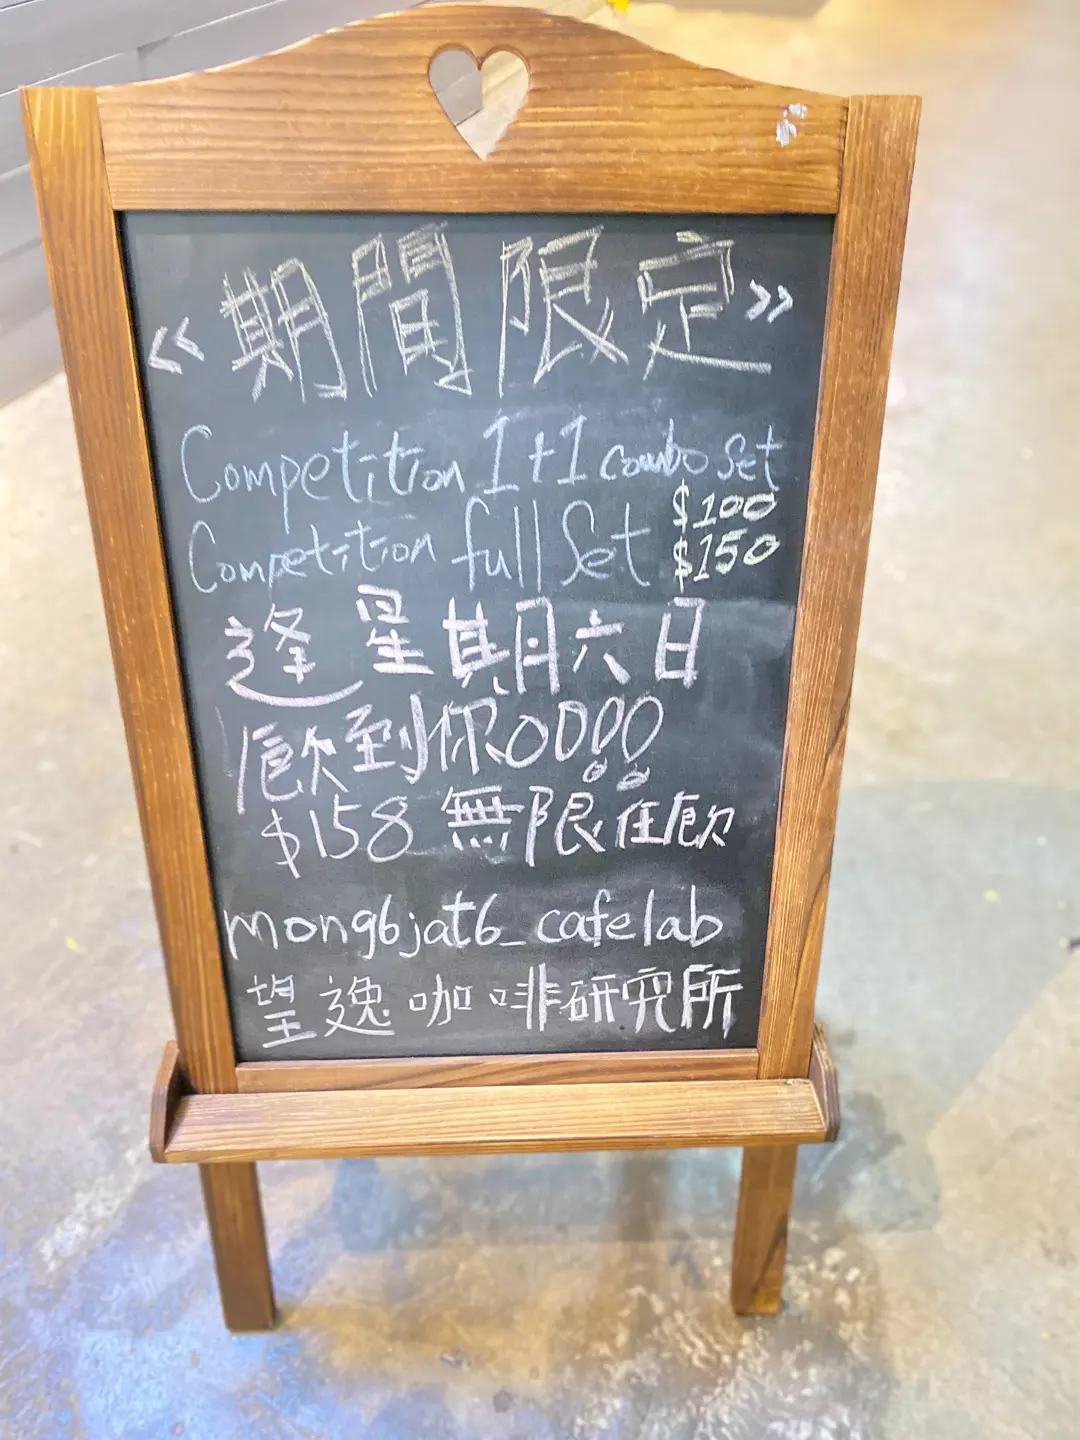 《期間限定》
Competition 1+1 combo set $100
Competition full Set $150
逢星期六日
飲到你OO!!
$158 無限任飲
mong6jat6_cafelab
望逸咖啡研究所